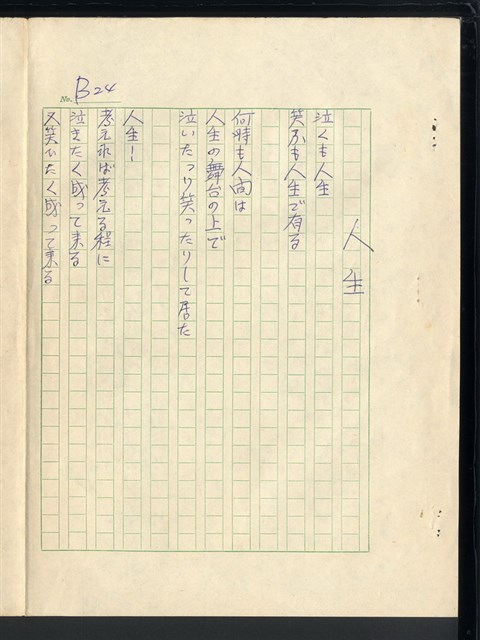 No. B24
人生
泣くも人生
笑ふも人生で有る
何時も人間は
人生の舞台の上で
泣いたり笑ったりして居た
人生—
考えれば考える程に
泣きたく成って来る
又笑いたく成って来る